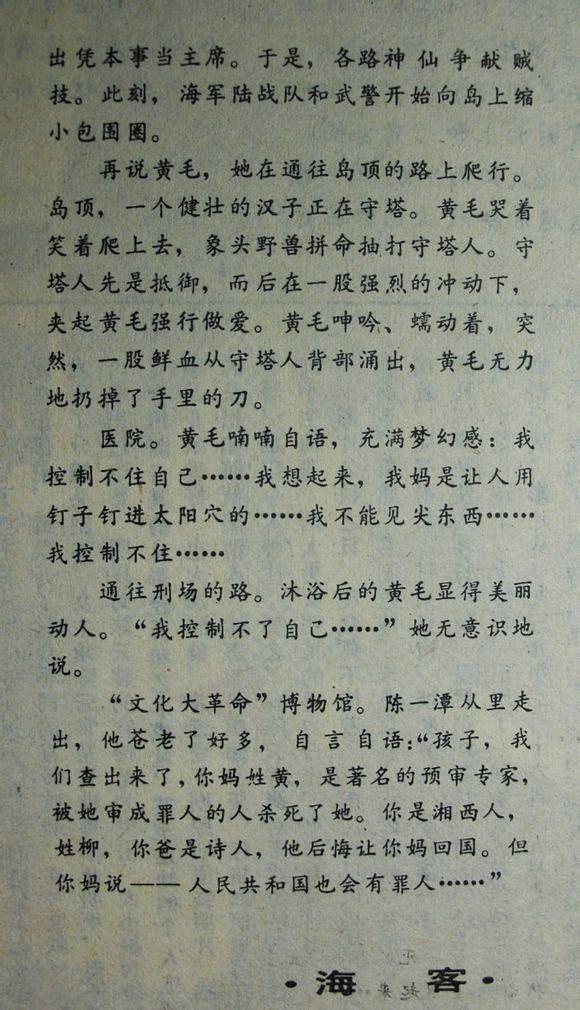 出凭本事当主席。于是，各路神仙争献贼
技。此刻，海军陆战队和武警开始向岛上缩
小包围圈。
再说黄毛，她在通往岛顶的路上爬行。
岛顶，一个健壮的汉子正在守塔。黄毛哭着
笑着爬上去，象头野兽拼命抽打守塔人。守
塔人先是抵御，而后在一股强烈的冲动下，
夹起黄毛强行做爱。黄毛呻吟、蠕动着，突
然，一股鲜血从守塔人背部涌出，黄毛无力
地扔掉了手里的刀。
医院。黄毛喃喃自语，充满梦幻感：我
控制不住自己……我想起来，我妈是让人用
钉子钉进太阳穴的……我不能见尖东西……
我控制不住……
通往刑场的路。沐浴后的黄毛显得美丽
动人。“我控制不了自己……”她无意识地
说。
“文化大革命”博物馆。陈一潭从里走
出，他苍老了好多，自言自语：“孩子，我
们查出来了，你妈姓黄，是著名的预审专家，
被她审成罪人的人杀死了她。你是湘西人，
姓柳，你爸是诗人，他后悔让你妈回国。但
你妈说——人民共和国也会有罪人……”
·海 客·